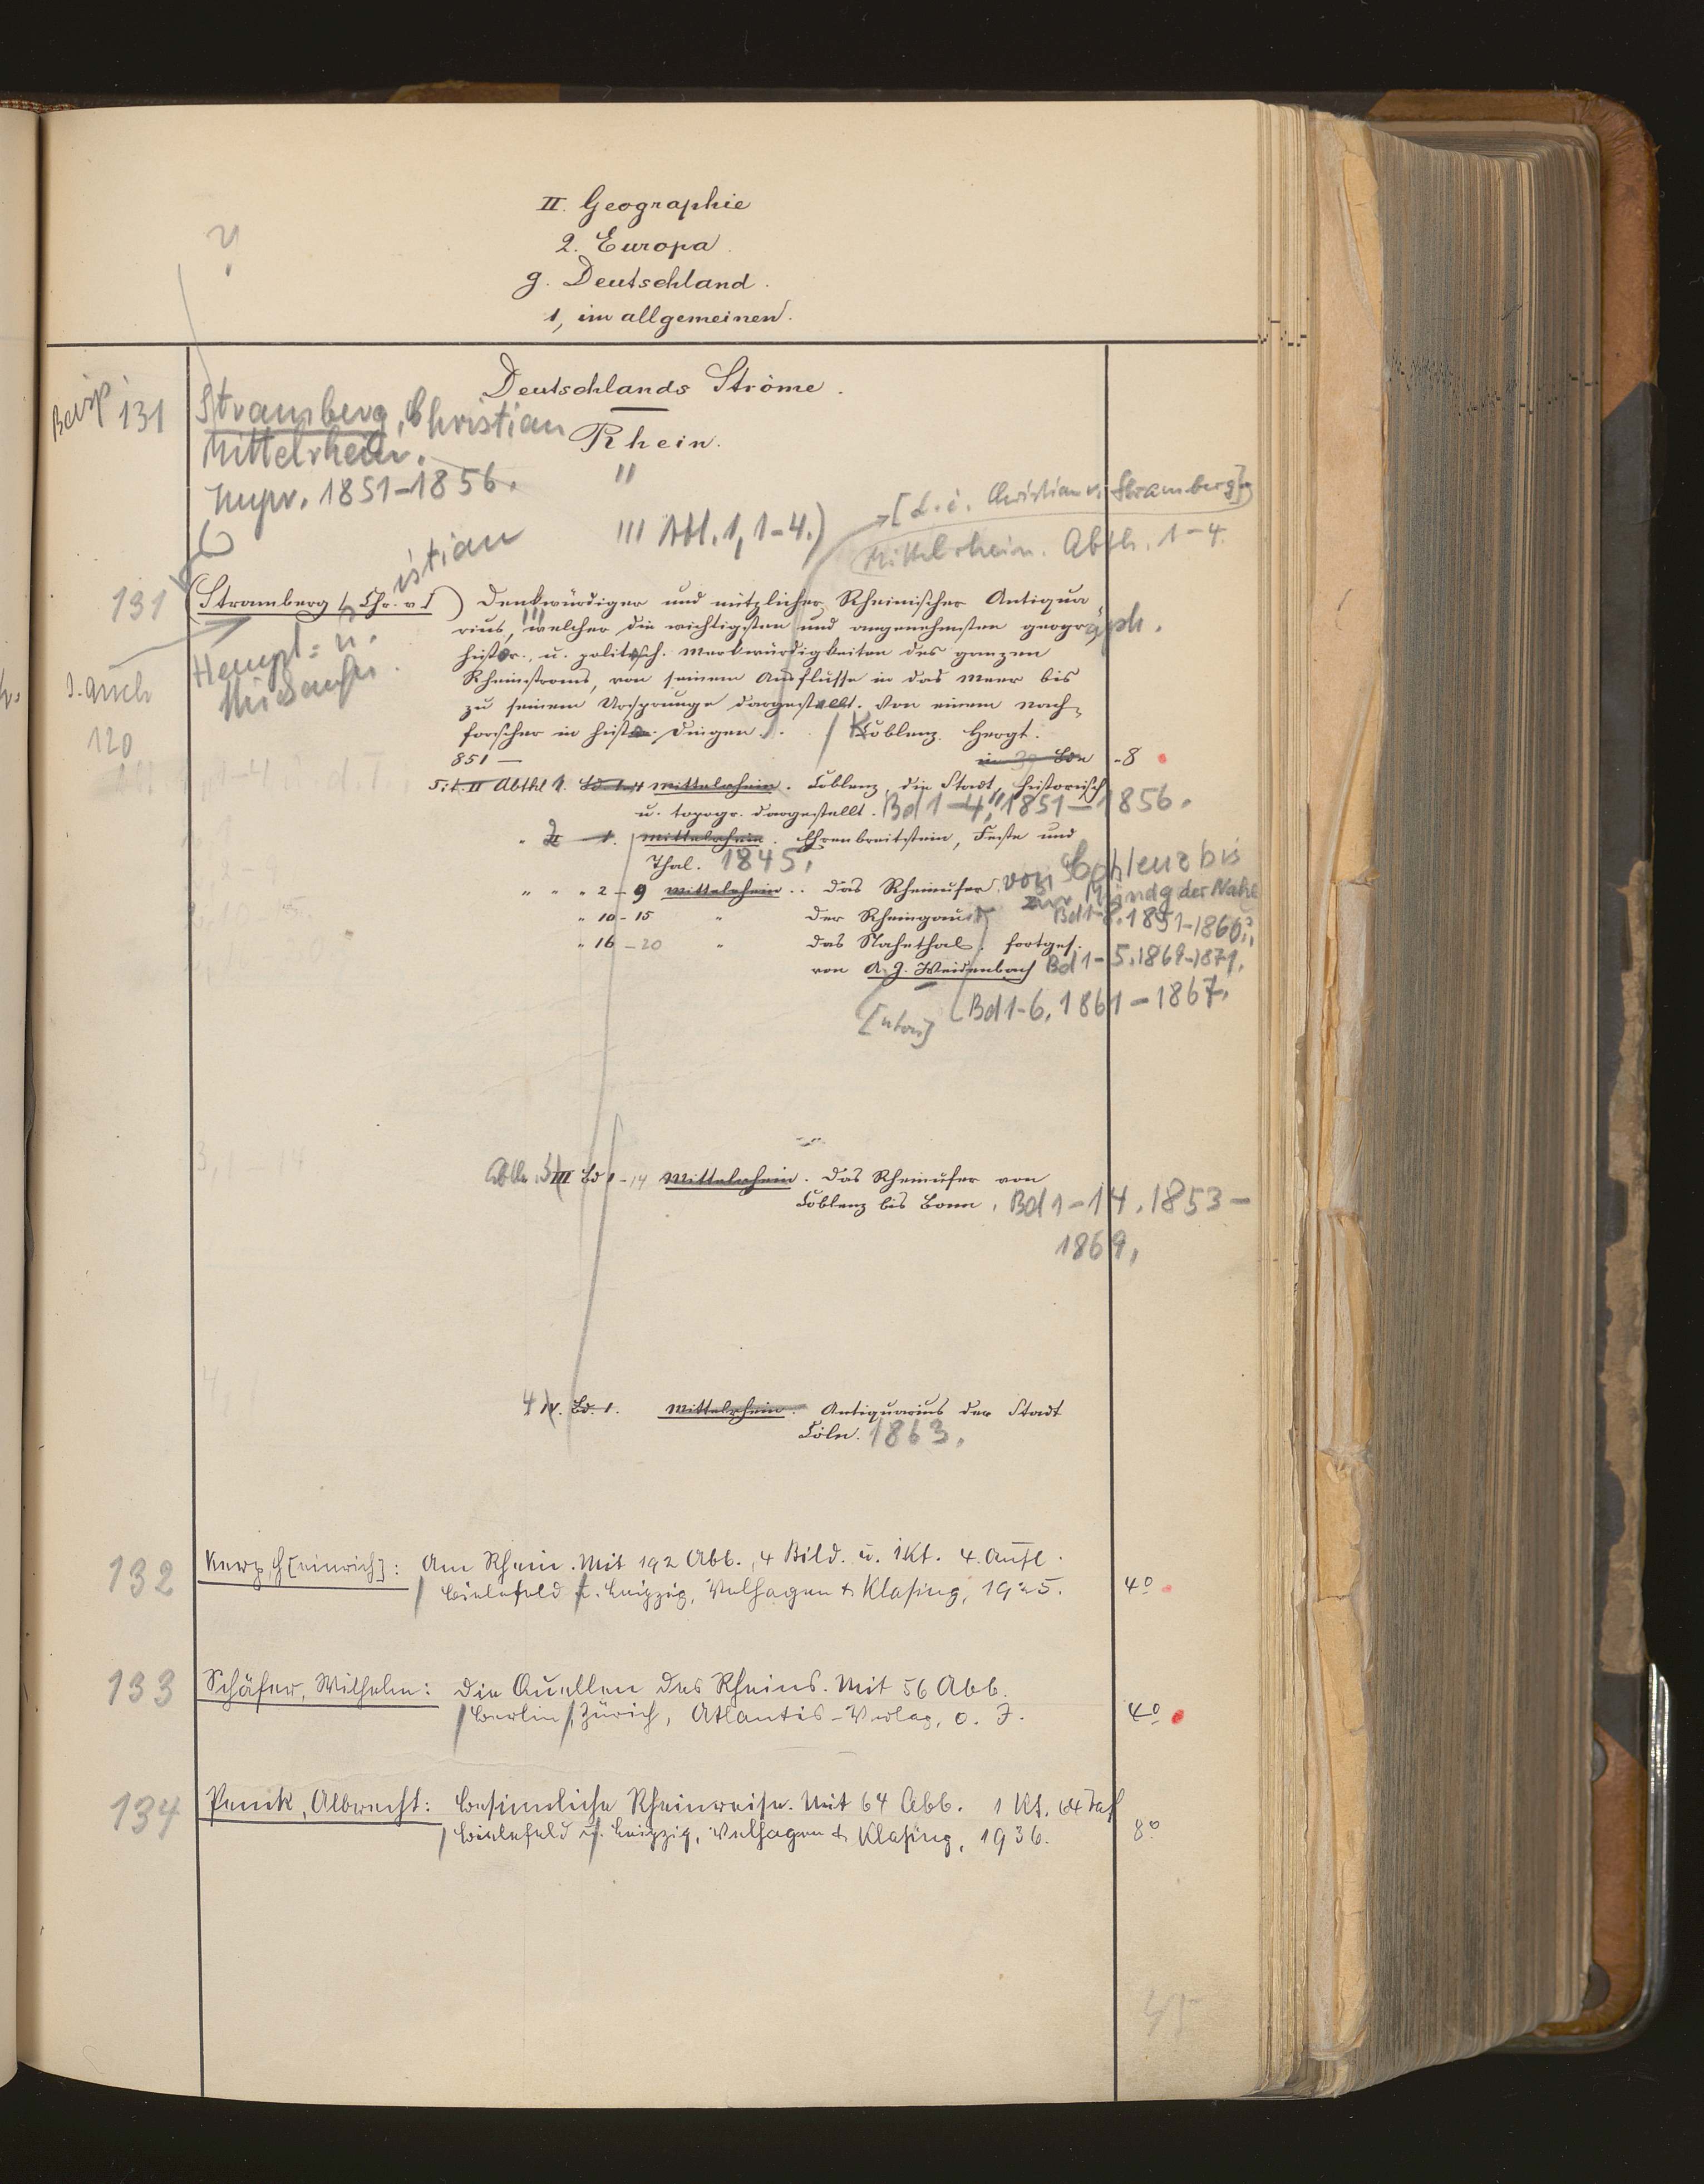 II. Geographie
2. Europa
g. Deutschland.
1, im allgemeinen.
?
Deutschlands Ströme.
Beisp 131
Stramberg, Christian
Mittelrhein.
1851-1856.
Rhein.
"
III Abt. 1, 1-4.)
[d. i. Christian v. Stramberg]
Mittelrhein. Abth. 1-4.
131
(Stramberg, Chr. v.) Denkwürdiger und nützlicher Rheinischer Antiqua
istian
rius, welcher die wichtigsten und angenehmsten geograph.
histor., u. politisch. Merkwürdigkeiten des ganzen
Haupt= u.
Rheinstroms, von seinem Ausflusse in das Meer bis
s. auch
zu seinem Ursprunge dargestellt. Von einem Nach=
120
forscher in histor. Dingen. / Koblenz. Hergt.
851 — in 39 Bdn -8
Tit. II Abthl 1. Bd. 1-4 Mittelrhein. Coblenz, die Stadt, historisch
u. topogr. dargestellt. Bd 1-4, 1851-1856.
" 2 1. Mittelrhein. Ehrenbreitstein, Feste und
Thal. 1845.
" " " 2-9 Mittelrhein. Das Rheinufer von Coblenz bis
zur Mündg der Nahe
Bd 1-8. 1851-1860.
" 10-15 " Der Rheingau
" 16-20 " Das Nahethal. fortges.
von A. J. Weidenbach Bd 1-5. 1869-1871.
[nton]
Bd 1-6. 1861-1867.
Abth. 3 III Bd 1-14 Mittelrhein. Das Rheinufer von
Coblenz bis Bonn. Bd 1-14. 1853-
1869.
4 IV. Bd. 1. Mittelrhein. Antiquarius der Stadt
Cöln. 1863.
132 Kerp, H[einrich]: Am Rhein. Mit 192 Abb., 4 Bild. u. 1 Kt. 4. Aufl.
/ Bielefeld u. Leipzig, Velhagen & Klasing, 1925. 4°
133 Schäfer, Wilhelm: Die Quellen des Rheins. Mit 56 Abb.
/ Berlin / Zürich, Atlantis-Verlag, o. J. 4°
134 Penck, Albrecht: Besinnliche Rheinreise. Mit 64 Abb. 1 Kt. 64 Taf
/ Bielefeld u. Leipzig, Velhagen & Klasing, 1936. 8°